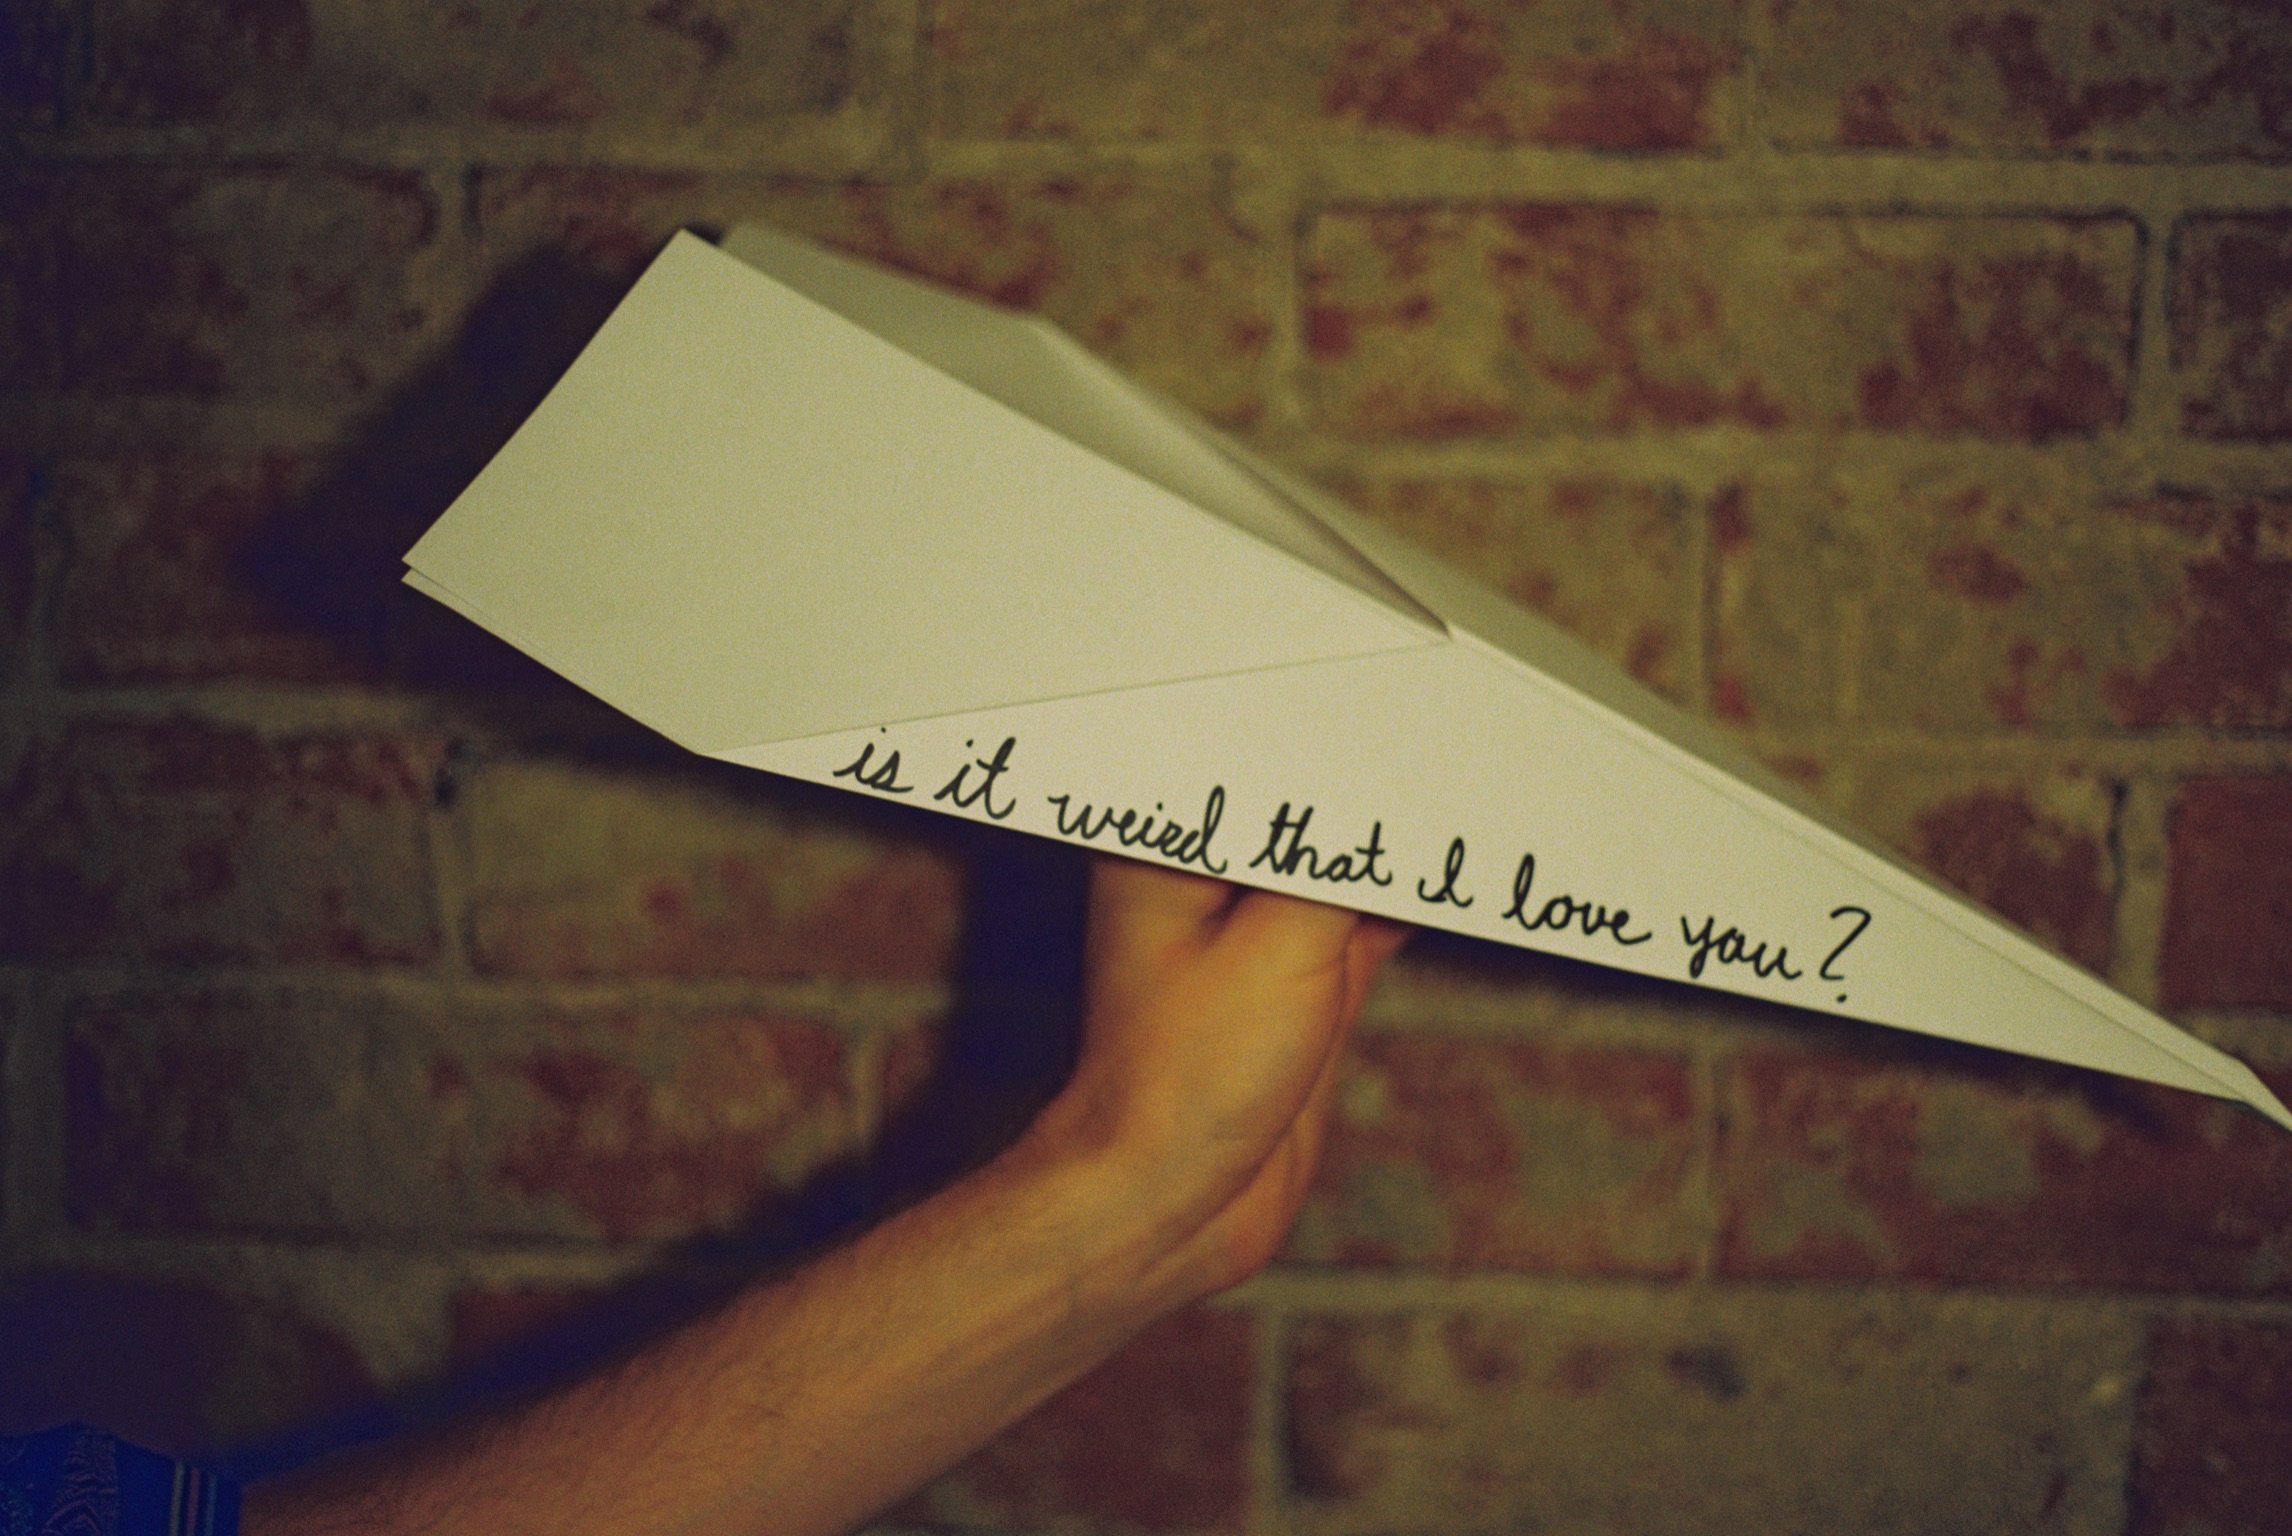 is it weird that I love you?